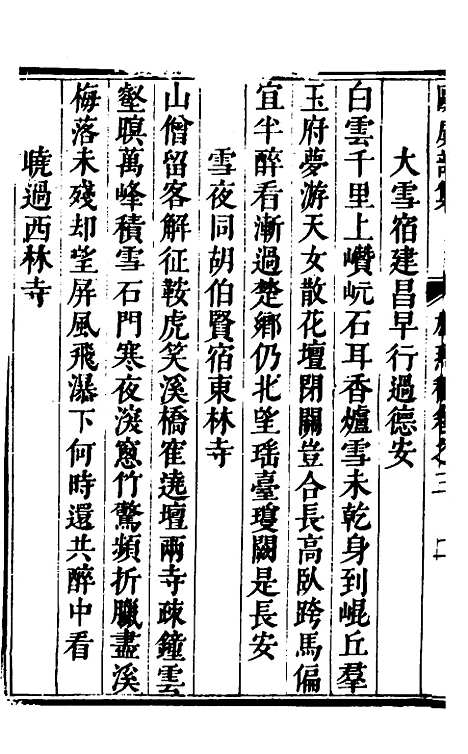 大雪宿建昌早行過德安
白雲千里上巑岏石耳香爐雪未乾身到崐丘羣
玉府夢游天女散花壇閉關豈合長高臥跨馬偏
宜半醉看漸過楚鄉仍北望瑶臺瓊闕是長安
雪夜同胡伯賢宿東林寺
山僧留客解征鞍虎笑溪橋寉遶壇兩寺疎鐘雲
壑暝萬峰積雪石門寒夜深窻竹驚頻折臘盡溪
梅落未殘却望屏風飛瀑下何時還共醉中看
曉過西林寺